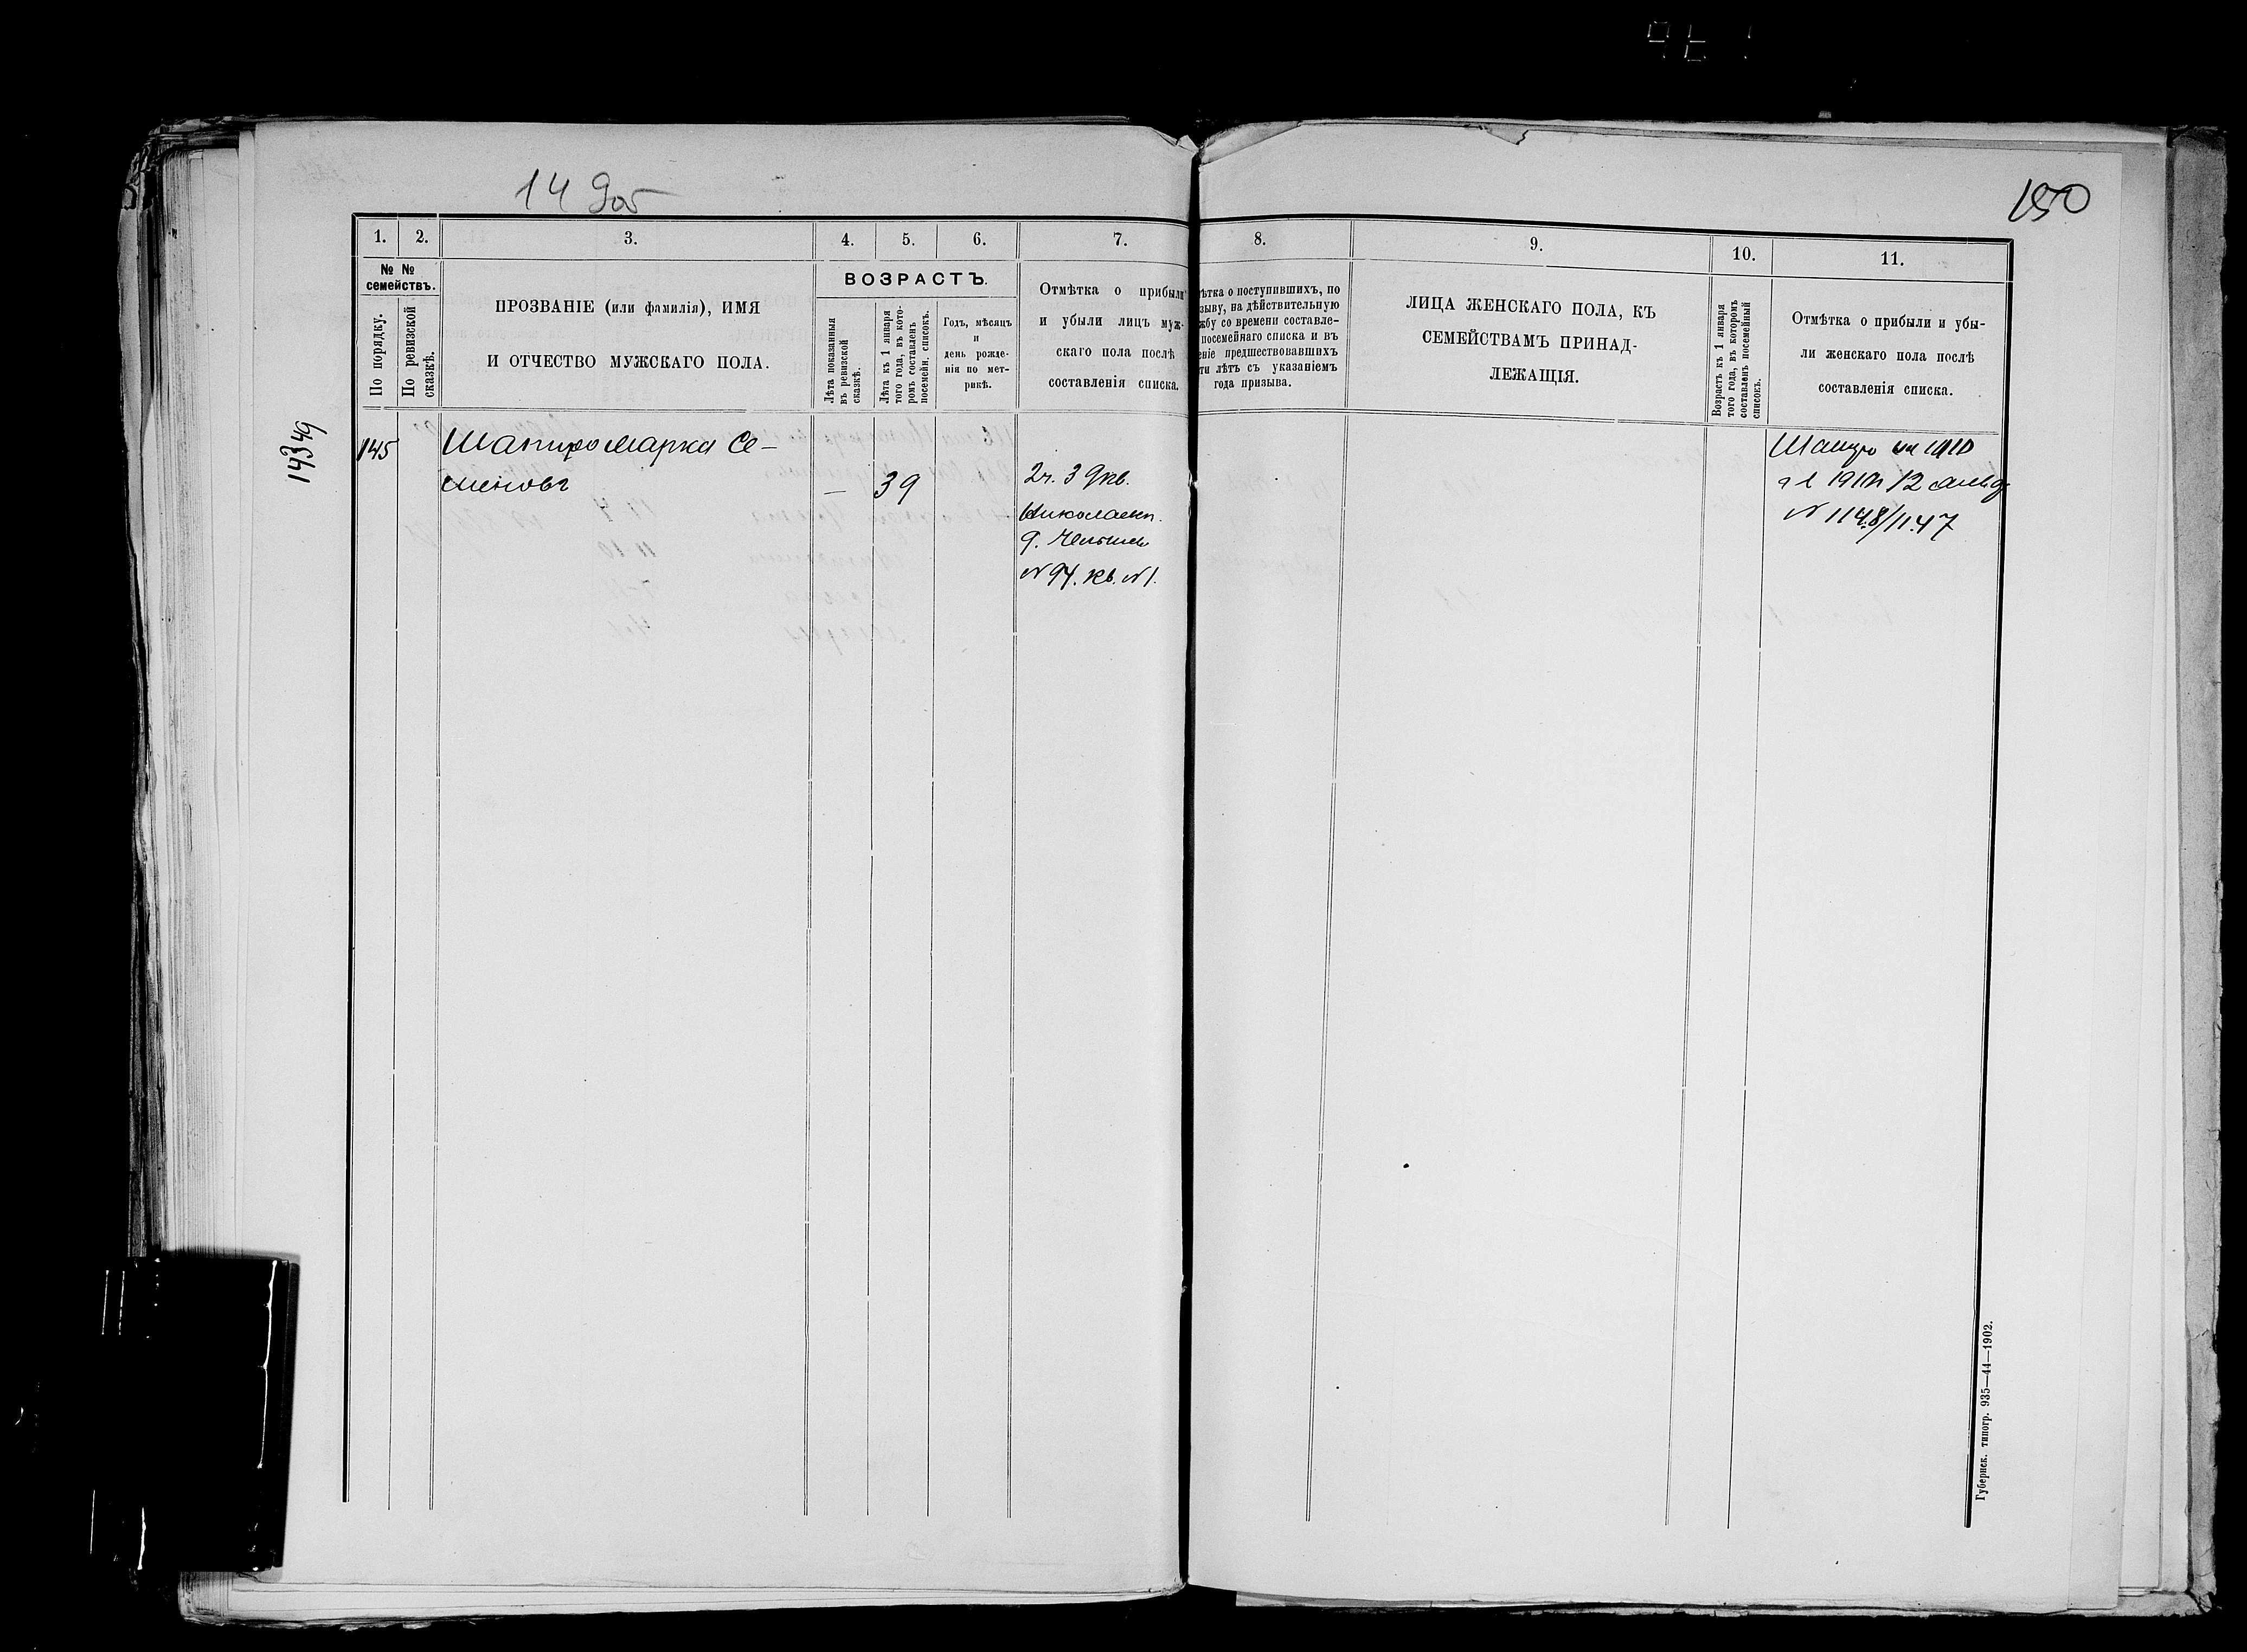 14
150
1.
2.
3.
4.
5.
6.
7.
8.
9.
10.
11.
№ №
семействъ.
По порядку.
По ревизской
сказкѣ.
ПРОЗВАНІЕ (или фамилія), ИМЯ
И ОТЧЕСТВО МУЖСКАГО ПОЛА.
ВОЗРАСТЪ.
Лѣта показанныя
въ ревизской
сказкѣ.
Лѣта къ 1 января
того года, въ кото-
ромъ составленъ
посемейн. списокъ.
Годъ, мѣсяцъ
и
день рожде-
нія по мет-
рикѣ.
Отмѣтка о прибыли
и убыли лицъ муж-
скаго пола послѣ
составленія списка.
ѣтка о поступившихъ, по
зыву, на дѣйствительную
жбу со времени составле-
посемейнаго списка и въ
еніе предшествовавшихъ
ти лѣтъ съ указаніемъ
года призыва.
ЛИЦА ЖЕНСКАГО ПОЛА, КЪ
СЕМЕЙСТВАМЪ ПРИНАД-
ЛЕЖАЩІЯ.
Возрастъ къ 1 января
того года, въ которомъ
составленъ посемейный
списокъ.
Отмѣтка о прибыли и убы-
ли женскаго пола послѣ
составленія списка.
145
Шапиро Марка Се-
меновъ
—
39
2ч. 3
Николаевск.
д.
№ 94. кв. №1.
на 1910
12
№ 1148/1147
Губернск. типогр. 935—44—1902.